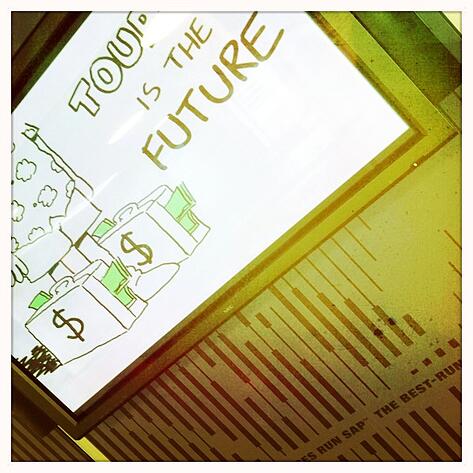 TOUR
IS THE
FUTURE
$
$
RUN SAP® THE BEST-RUN